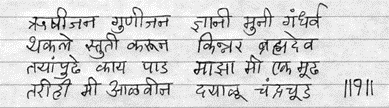 ऋषीजन गुणीजन ज्ञानी मुनी गंधर्व
थकले स्तुती करून किन्नर ब्रह्मदेव
तयांपुढे काय पाड माझा मी एक मूढ
तरीही मी आळवीन दयाळू चंद्रचूड ॥१॥